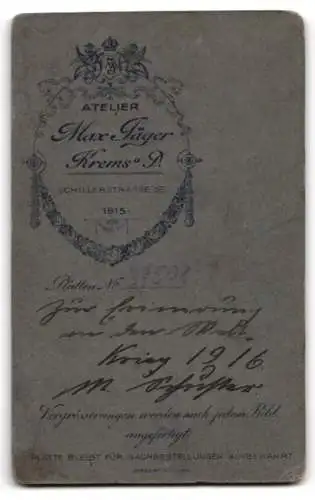 ATELIER
Max Jäger
Krems a. D.
SCHILLERSTRASSE
1915
Platten Nr.
Zur Erinnerung
an den Welt-
Krieg 1916
M. Schuster
Vergrösserungen werden nach jedem Bild
angefertigt.
PLATTE BLEIBT FÜR NACHBESTELLUNGEN AUFBEWAHRT